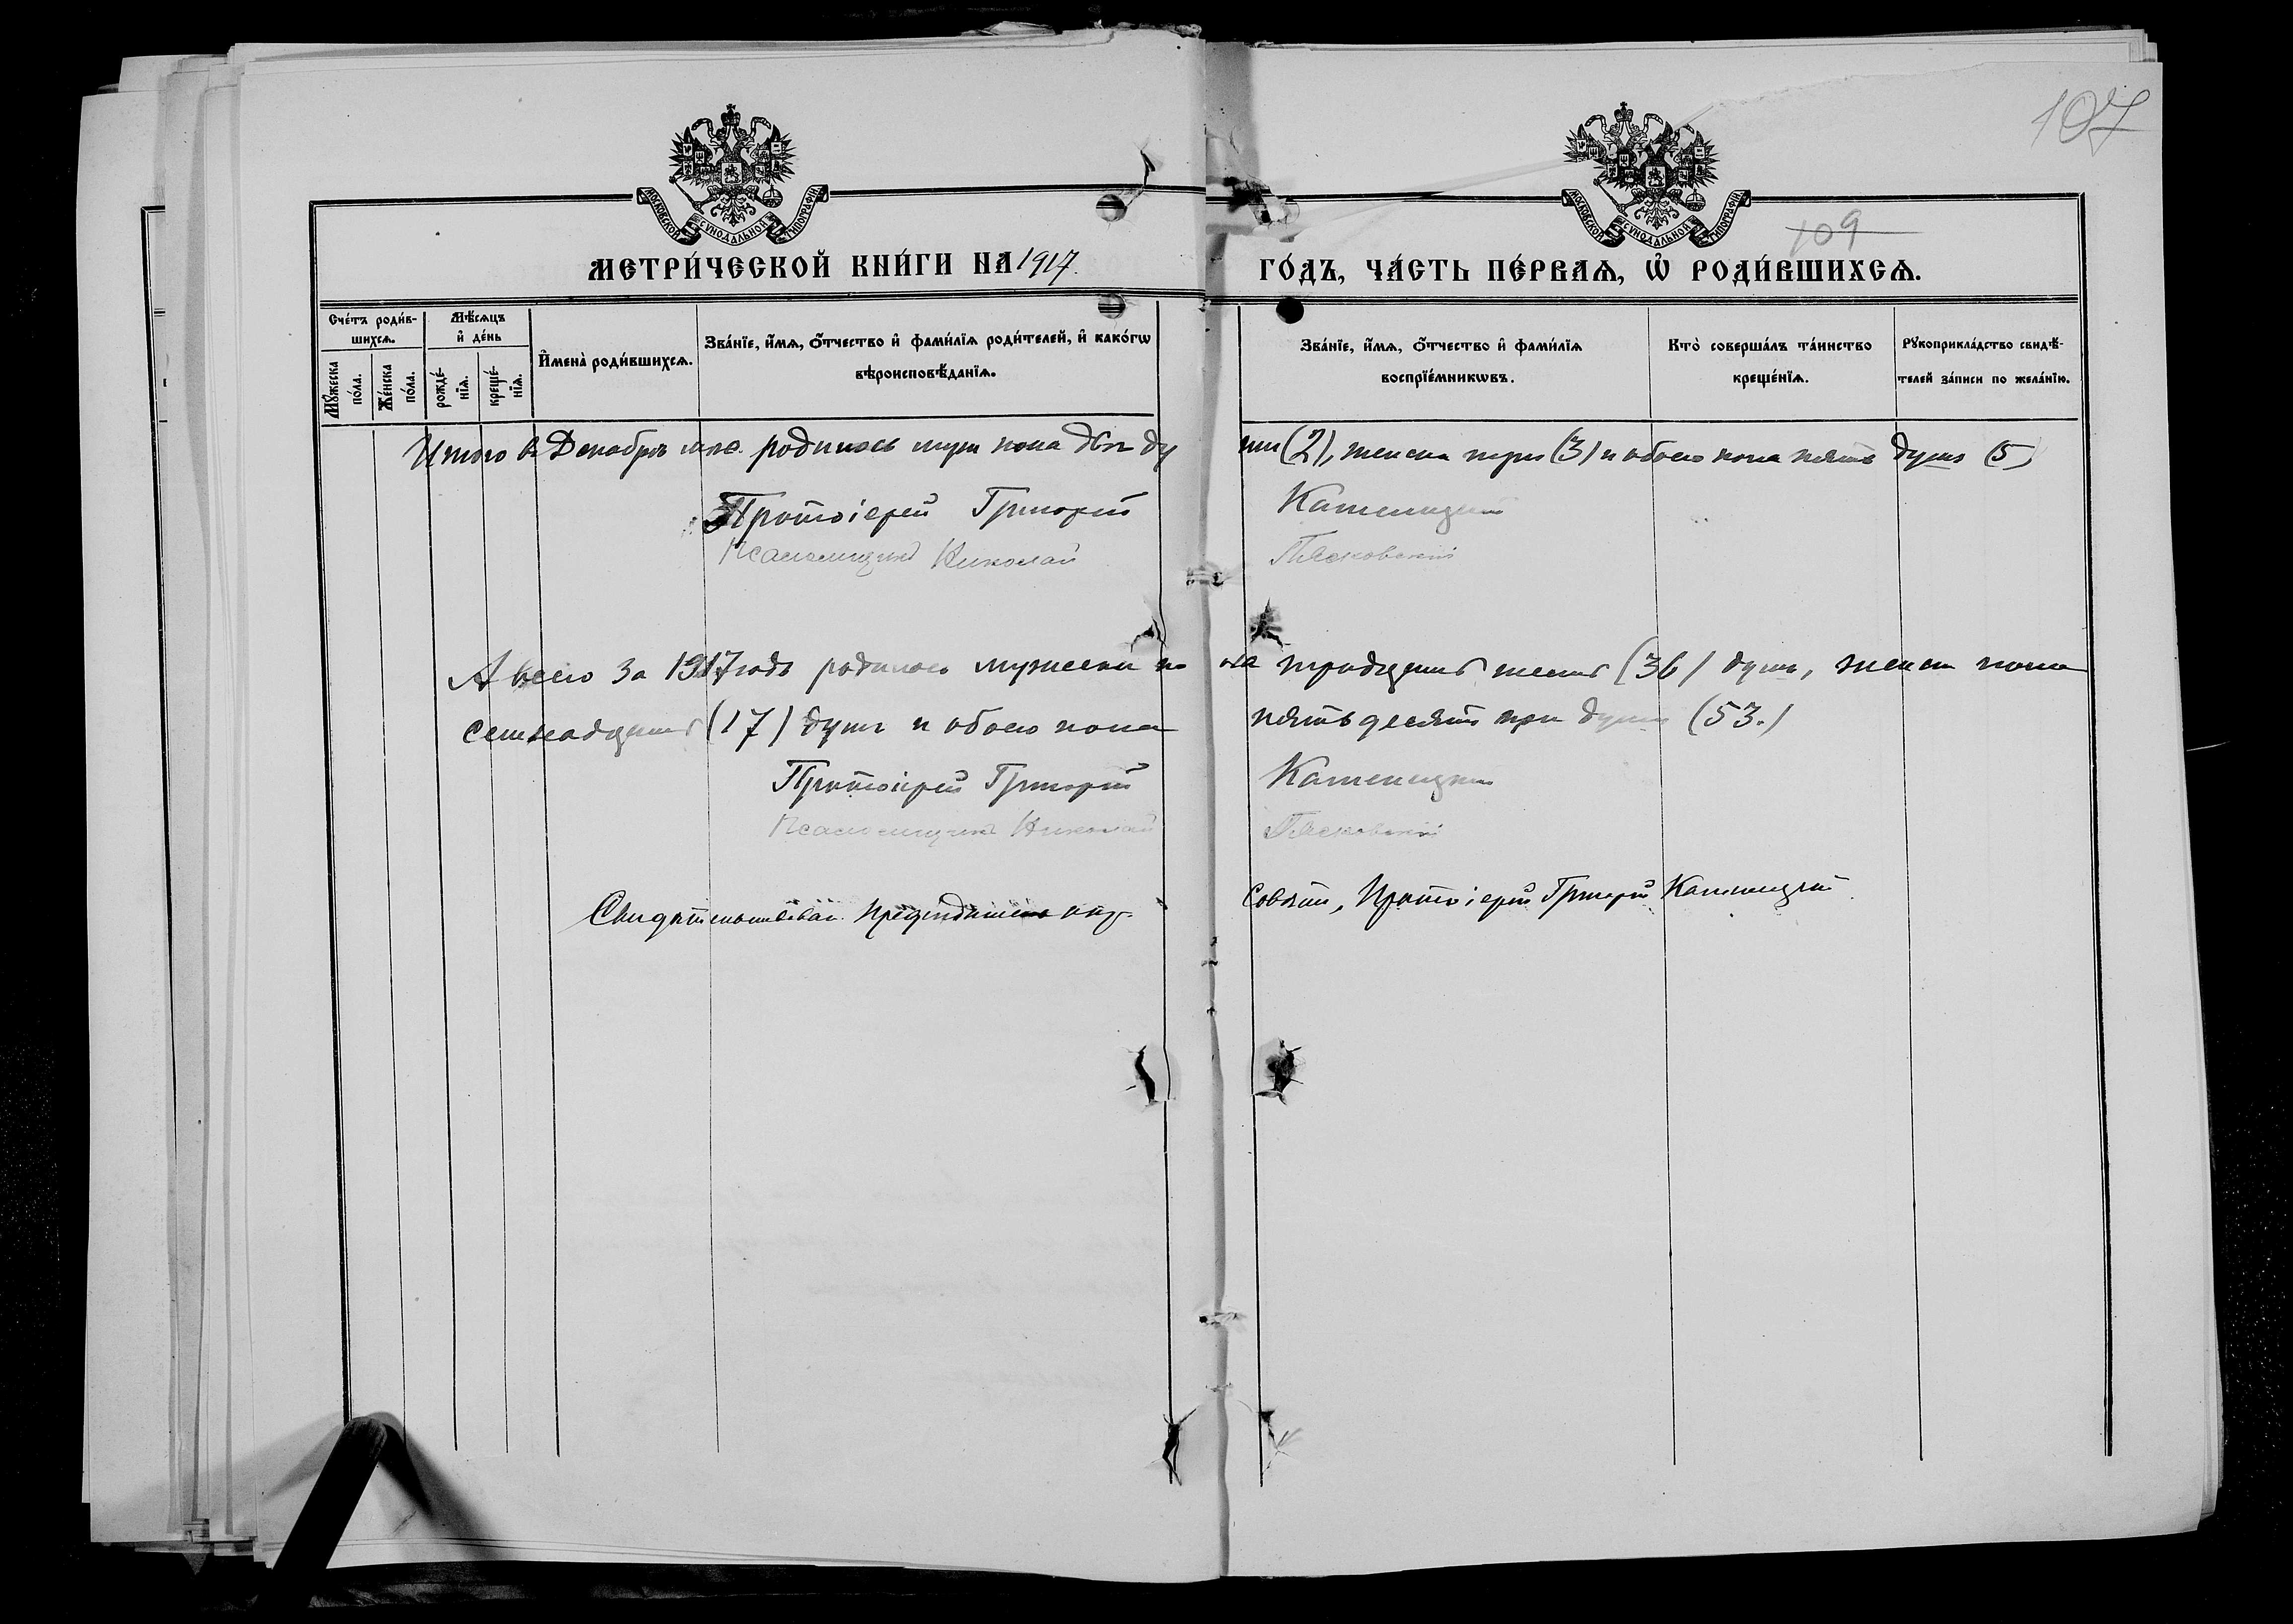 107
109
МОСКОВСКОЙ СѴНОДАЛЬНОЙ ТИПОГРАФІИ
МОСКОВСКОЙ СѴНОДАЛЬНОЙ ТИПОГРАФІИ
МЕТРИ́ЧЕСКОЙ КНИ́ГИ НА 1917. ГО́ДЪ, ЧА́СТЬ ПЕ́РВАѦ, Ѡ҆ РОДИ́ВШИХСѦ.
Сче́тъ роди́в-
шихсѧ.
Мꙋ́жеска по́ла.
Же́нска по́ла.
Мѣ́сѧцъ
и҆ де́нь
рожде́-
нїѧ.
креще́-
нїѧ.
И҆мена̀ роди́вшихсѧ.
Зва́нїе, и҆́мѧ, ѻ҆́тчество и҆ фами́лїѧ роди́телей, и҆ како́гѡ
вѣроисповѣ́данїѧ.
Зва́нїе, и҆́мѧ, ѻ҆́тчество и҆ фами́лїѧ
воспрїе́мникѡвъ.
Кто̀ соверша́лъ та́инство
креще́нїѧ.
Рꙋкоприкла́дство свидѣ́-
телей за́писи по жела́нїю.
Итого въ Декабрѣ м-цѣ родилось муж пола двѣ ду ши (2), женска три (3) и обоего пола пять душъ (5)
Протоіерей Григорій Каменицкій
Псаломщикъ Николай Пясковскій
А всего за 1917 годъ родилось мужеска по ла тридцать шесть (36) душъ, женск пола
семнадцать (17) душъ и обоего пола пятьдесятъ три души (53.)
Протоіерей Григорій Каменицкій
Псаломщикъ Николай Пясковскій
Свидѣтельствовалъ Предсѣдатель Совѣта, Протоіерей Григорій Каменицкій